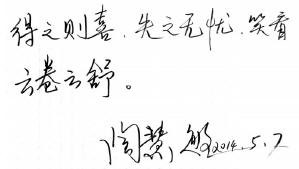 得之则喜、失之无忧、笑看
云卷云舒。
陶慧敏 2014.5.7